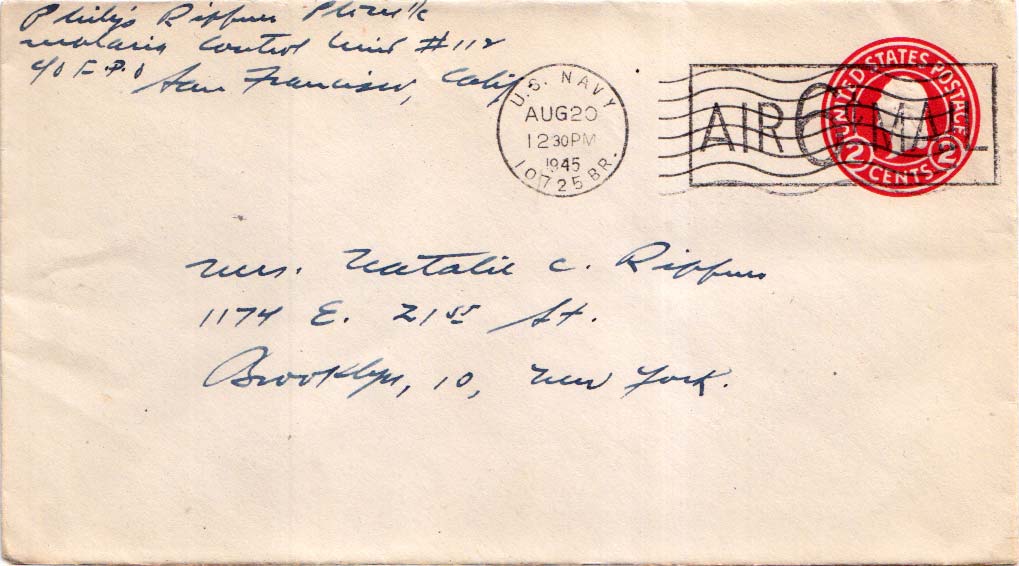 Philip Rippner PhM 1/c
Malaria Control Unit #112
c/o F.P.O
San Francisco, Calif
U.S. NAVY
AUG 20
12 30 PM
1945
10725 BR.
AIR 6¢ MAIL
UNITED STATES POSTAGE
2 CENTS 2
Mrs. Natalie C. Rippner
1174 E. 21st St.
Brooklyn, 10, New York.